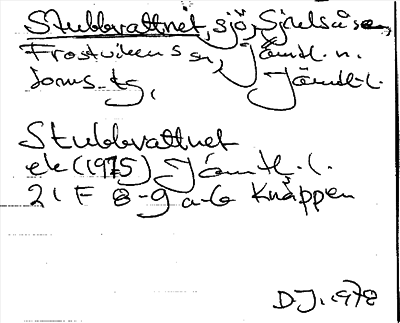 Stubbvattnet, sjö, Sjulsåsen,
Frostvikens sn, Jämtl. n.
doms. tg, Jämtl. l.
Stubbvattnet
ek (1975) Jämtl. l.
21 F 8-9 a-b Knäppen
D.J. 1978